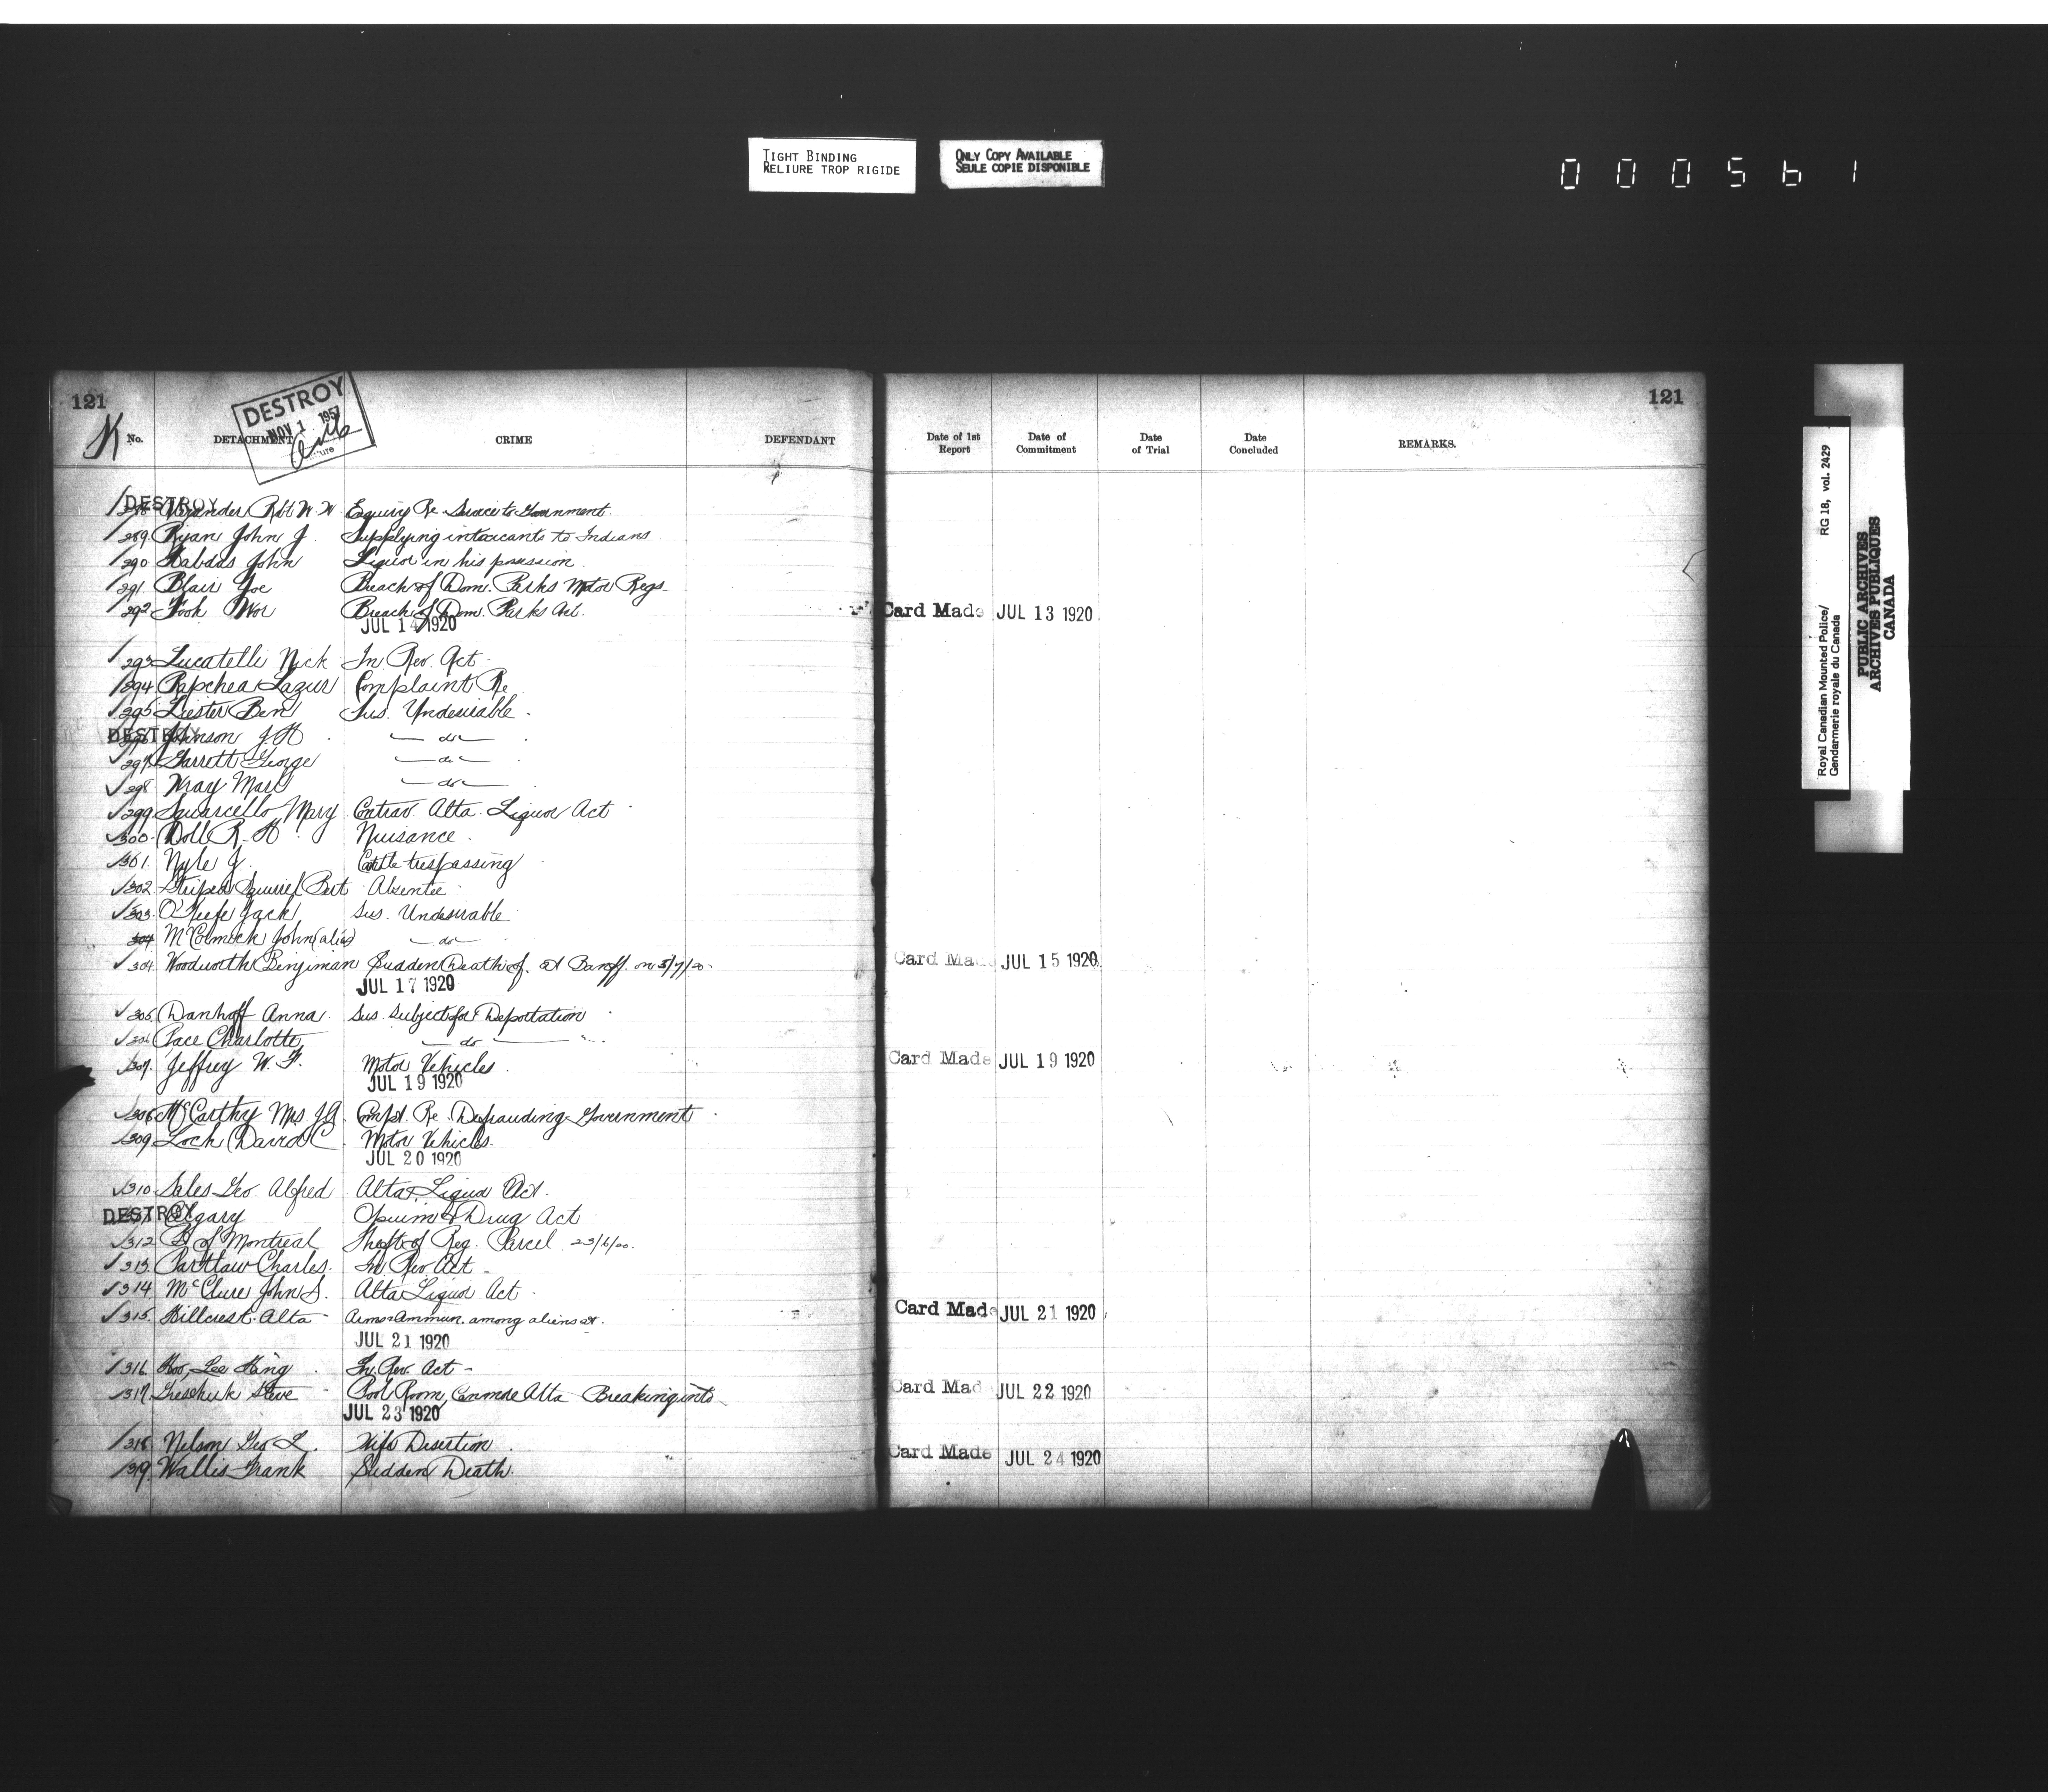 TIGHT BINDING
RELIURE TROP RIGIDE
ONLY COPY AVAILABLE
SEULE COPIE DISPONIBLE
000561
121
DESTROY
NOV 1 1957
K No. DETACHMENT CRIME DEFENDANT
DESTROY
288 Alexander Robt W. W. Enquiry Re Service to Government
289 Ryan John J. Supplying intoxicants to Indians
290 John Liquor in his possession
291 Blair Joe Breach of Dom. Parks Motor Regs.
292 Fook Wor Breach of Dom. Parks Act.
JUL 14 1920
293 Lucatelli Nick In. Rev. Act
294 Papchea Lazur Complaint Re
295 Liester Ben Sus. Undesirable
DESTROY
296 Johnson J H do
297 Garrett George do
298 Wray Marie do
299 Squarcello Mary Contrav. Alta. Liquor Act
300 Doll R. H Nuisance
301. Nyle J. Cattle trespassing
302 Striped Squirrel Bert Absentee
303. O'Keefe Jack Sus. Undesirable
304 McCormick John (alias) do
304 Woodworth Benjiman Sudden Death of. at Banff. on 5/7/20
JUL 17 1920
305. Danhoff Anna Sus. Subject for Deportation
306 Pace Charlotte do
307. Jeffrey W. F. Motor Vehicles
JUL 19 1920
308 McCarthy Mrs J.A. Compl. Re. Defrauding Government
309. Loch David C Motor Vehicles.
JUL 20 1920
310 Sales Geo. Alfred Alta. Liquor Act.
DESTROY
311 Calgary Opuim & Drug Act
312 B of Montreal Theft of Reg. Parcel 23/6/20.
313. Partlaw Charles. In Rev Act
314. McClure John S. Alta Liquor Act
315. Hillcrest. Alta Arms & Ammun. among aliens at.
JUL 21 1920
316. Hoo, Lee King In. Rev. Act
317. Greschuk Steve Pool Room, Canmore Alta Breaking into
JUL 23 1920
318. Nelson Geo L. Wife Desertion
319. Wallis Frank Sudden Death.
121
Date of 1st Report Date of Commitment Date of Trial Date Concluded REMARKS.
Card Made JUL 13 1920
Card Ma JUL 15 1920
Card Made JUL 19 1920
Card Made JUL 21 1920
Card Mad JUL 22 1920
Card Made JUL 24 1920
Royal Canadian Mounted Police/
Gendarmerie royale du Canada
RG 18, vol. 2429
PUBLIC ARCHIVES
ARCHIVES PUBLIQUES
CANADA